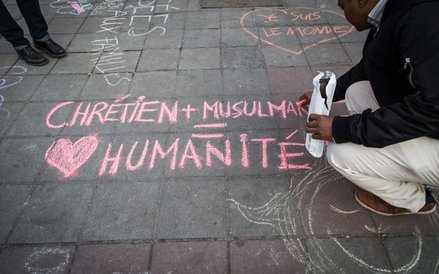 JE SUIS
LE MONDE
CHRÉTIEN + MUSULMAN
=
HUMANITÉ